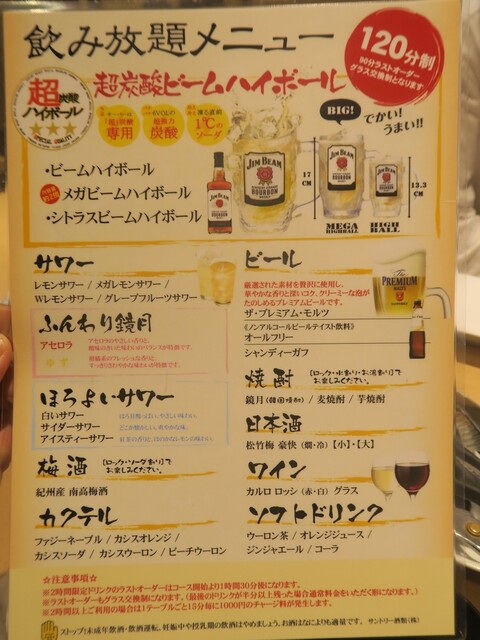 飲み放題メニュー
120分制
90分ラストオーダー
グラス交換制となります
超炭酸ビームハイボール
超炭酸
ハイボール
★★★
専用
炭酸
1℃の
ソーダ
BIG!
でかい!
うまい!!
・ビームハイボール
・メガビームハイボール
・シトラスビームハイボール
JIM BEAM
BOURBON
17
CM
13.3
CM
MEGA
HIGHBALL
HIGH
BALL
サワー
レモンサワー / メガレモンサワー /
Wレモンサワー / グレープフルーツサワー
ふんわり鏡月
アセロラ
アセロラのやさしい香りと、
ゆず
柑橘系のフレッシュな香りと、
すっきりさわやかな味わいが特徴です。
ほろよいサワー
白いサワー
サイダーサワー
どこか懐かしい、爽やかな味。
アイスティーサワー
梅酒
[ロック・ソーダ割り]で
お楽しみください。
紀州産 南高梅酒
カクテル
ファジーネーブル / カシスオレンジ /
カシスソーダ / カシスウーロン / ピーチウーロン
ビール
厳選された素材を贅沢に使用し、
華やかな香りと深いコク、クリーミーな泡が
たのしめるプレミアムビールです。
ザ・プレミアム・モルツ
The
PREMIUM
MALT'S
《ノンアルコールビールテイスト飲料》
オールフリー
シャンディーガフ
焼酎
[ロック・水割り・お湯割り]で
お楽しみください。
鏡月(韓国焼酎) / 麦焼酎 / 芋焼酎
日本酒
松竹梅 豪快 (燗・冷) 【小】・【大】
ワイン
カルロ ロッシ (赤・白) グラス
ソフトドリンク
ウーロン茶 / オレンジジュース /
ジンジャエール / コーラ
☆注意事項☆
※2時間限定ドリンクのラストオーダーはコース開始より1時間30分後になります。
※ラストオーダーもグラス交換制になります。(最後のドリンクが半分以上残った場合通常料金をいただく形になります。)
※2時間以上ご利用の場合は1テーブルごと15分毎に1000円のチャージ料が発生します。
ストップ!未成年飲酒・飲酒運転。妊娠中や授乳期の飲酒はやめましょう。お酒はなによりも適量です。 サントリー酒類(株)